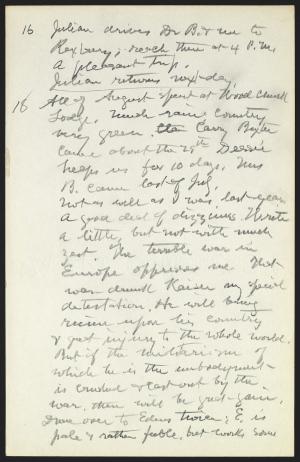 16 Julian drives Dr B. & me to
Roxbury; reach there at 4 P.M.
A pleasant trip.
Julian returns next day.
18 All of August spent at Woodchuck
Lodge. Much rain & country
very green. Clara Barrus
came about the 25th
keeps us for 10 days. Mrs
B. came last of July.
Not as well as I was last year
A good deal of dizziness. Wrote
a little, but not with much
zest. The terrible war in
Europe oppresses me. That
war drunk Kaiser my special
detestation. He will bring
ruin upon his country
& great injury to the whole world.
But if the militarism of
which he is the embodyment
is crushed & cast out by the
war, there will be great gain.
Drove over to Edens twice; E. is
pale & rather feeble, but works some